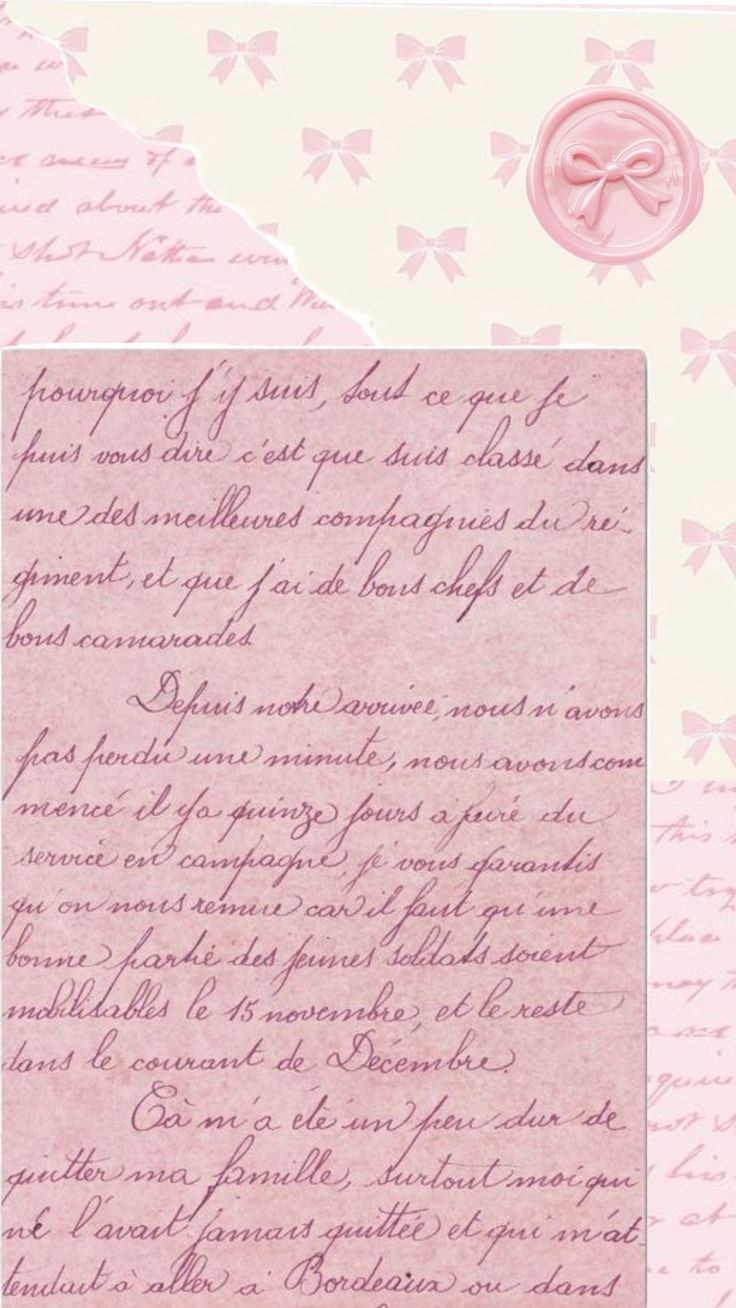 these
about the
shot
time out and
pourquoi j'y suis, tout ce que je
puis vous dire c'est que suis classé dans
une des meilleures compagnies du ré-
giment, et que j'ai de bons chefs et de
bons camarades
Depuis notre arrivée, nous n'avons
pas perdu une minute, nous avons com
mencé il y a quinze jours à faire du
service en campagne, je vous garantis
qu'on nous remue car il faut qu'une
bonne partie des jeunes soldats soient
mobilisables le 15 novembre, et le reste
dans le courant de Décembre.
Cà m'a été un peu dur de
quitter ma famille, surtout moi qui
ne l'avait jamais quittée et qui m'at-
tendait à aller à Bordeaux ou dans
this
his
at
to